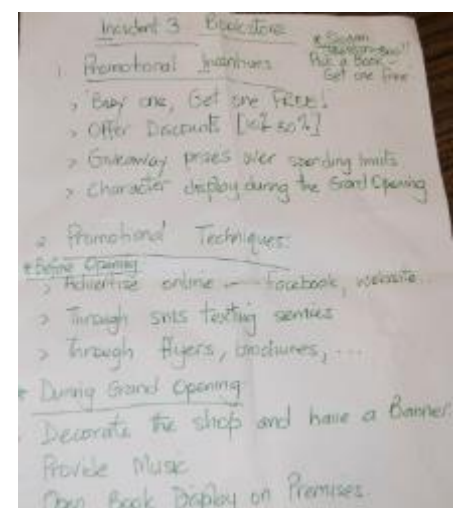 Incident 3 Bookstore
* Slogan
Pick a Book -
Get one Free
1. Promotional Incentives
> "Buy one, Get one FREE!
> Offer Discounts [10% 50%]
> Giveaway prizes over spending limits
> Character display during the Grand Opening
2 Promotional Techniques:
* Before Opening
> Advertise online — facebook, website...
> Through sms texting services
> Through flyers, brochures, ...
* During Grand Opening
Decorate the shop and have a Banner.
Provide Music
Open Book Display on Premises